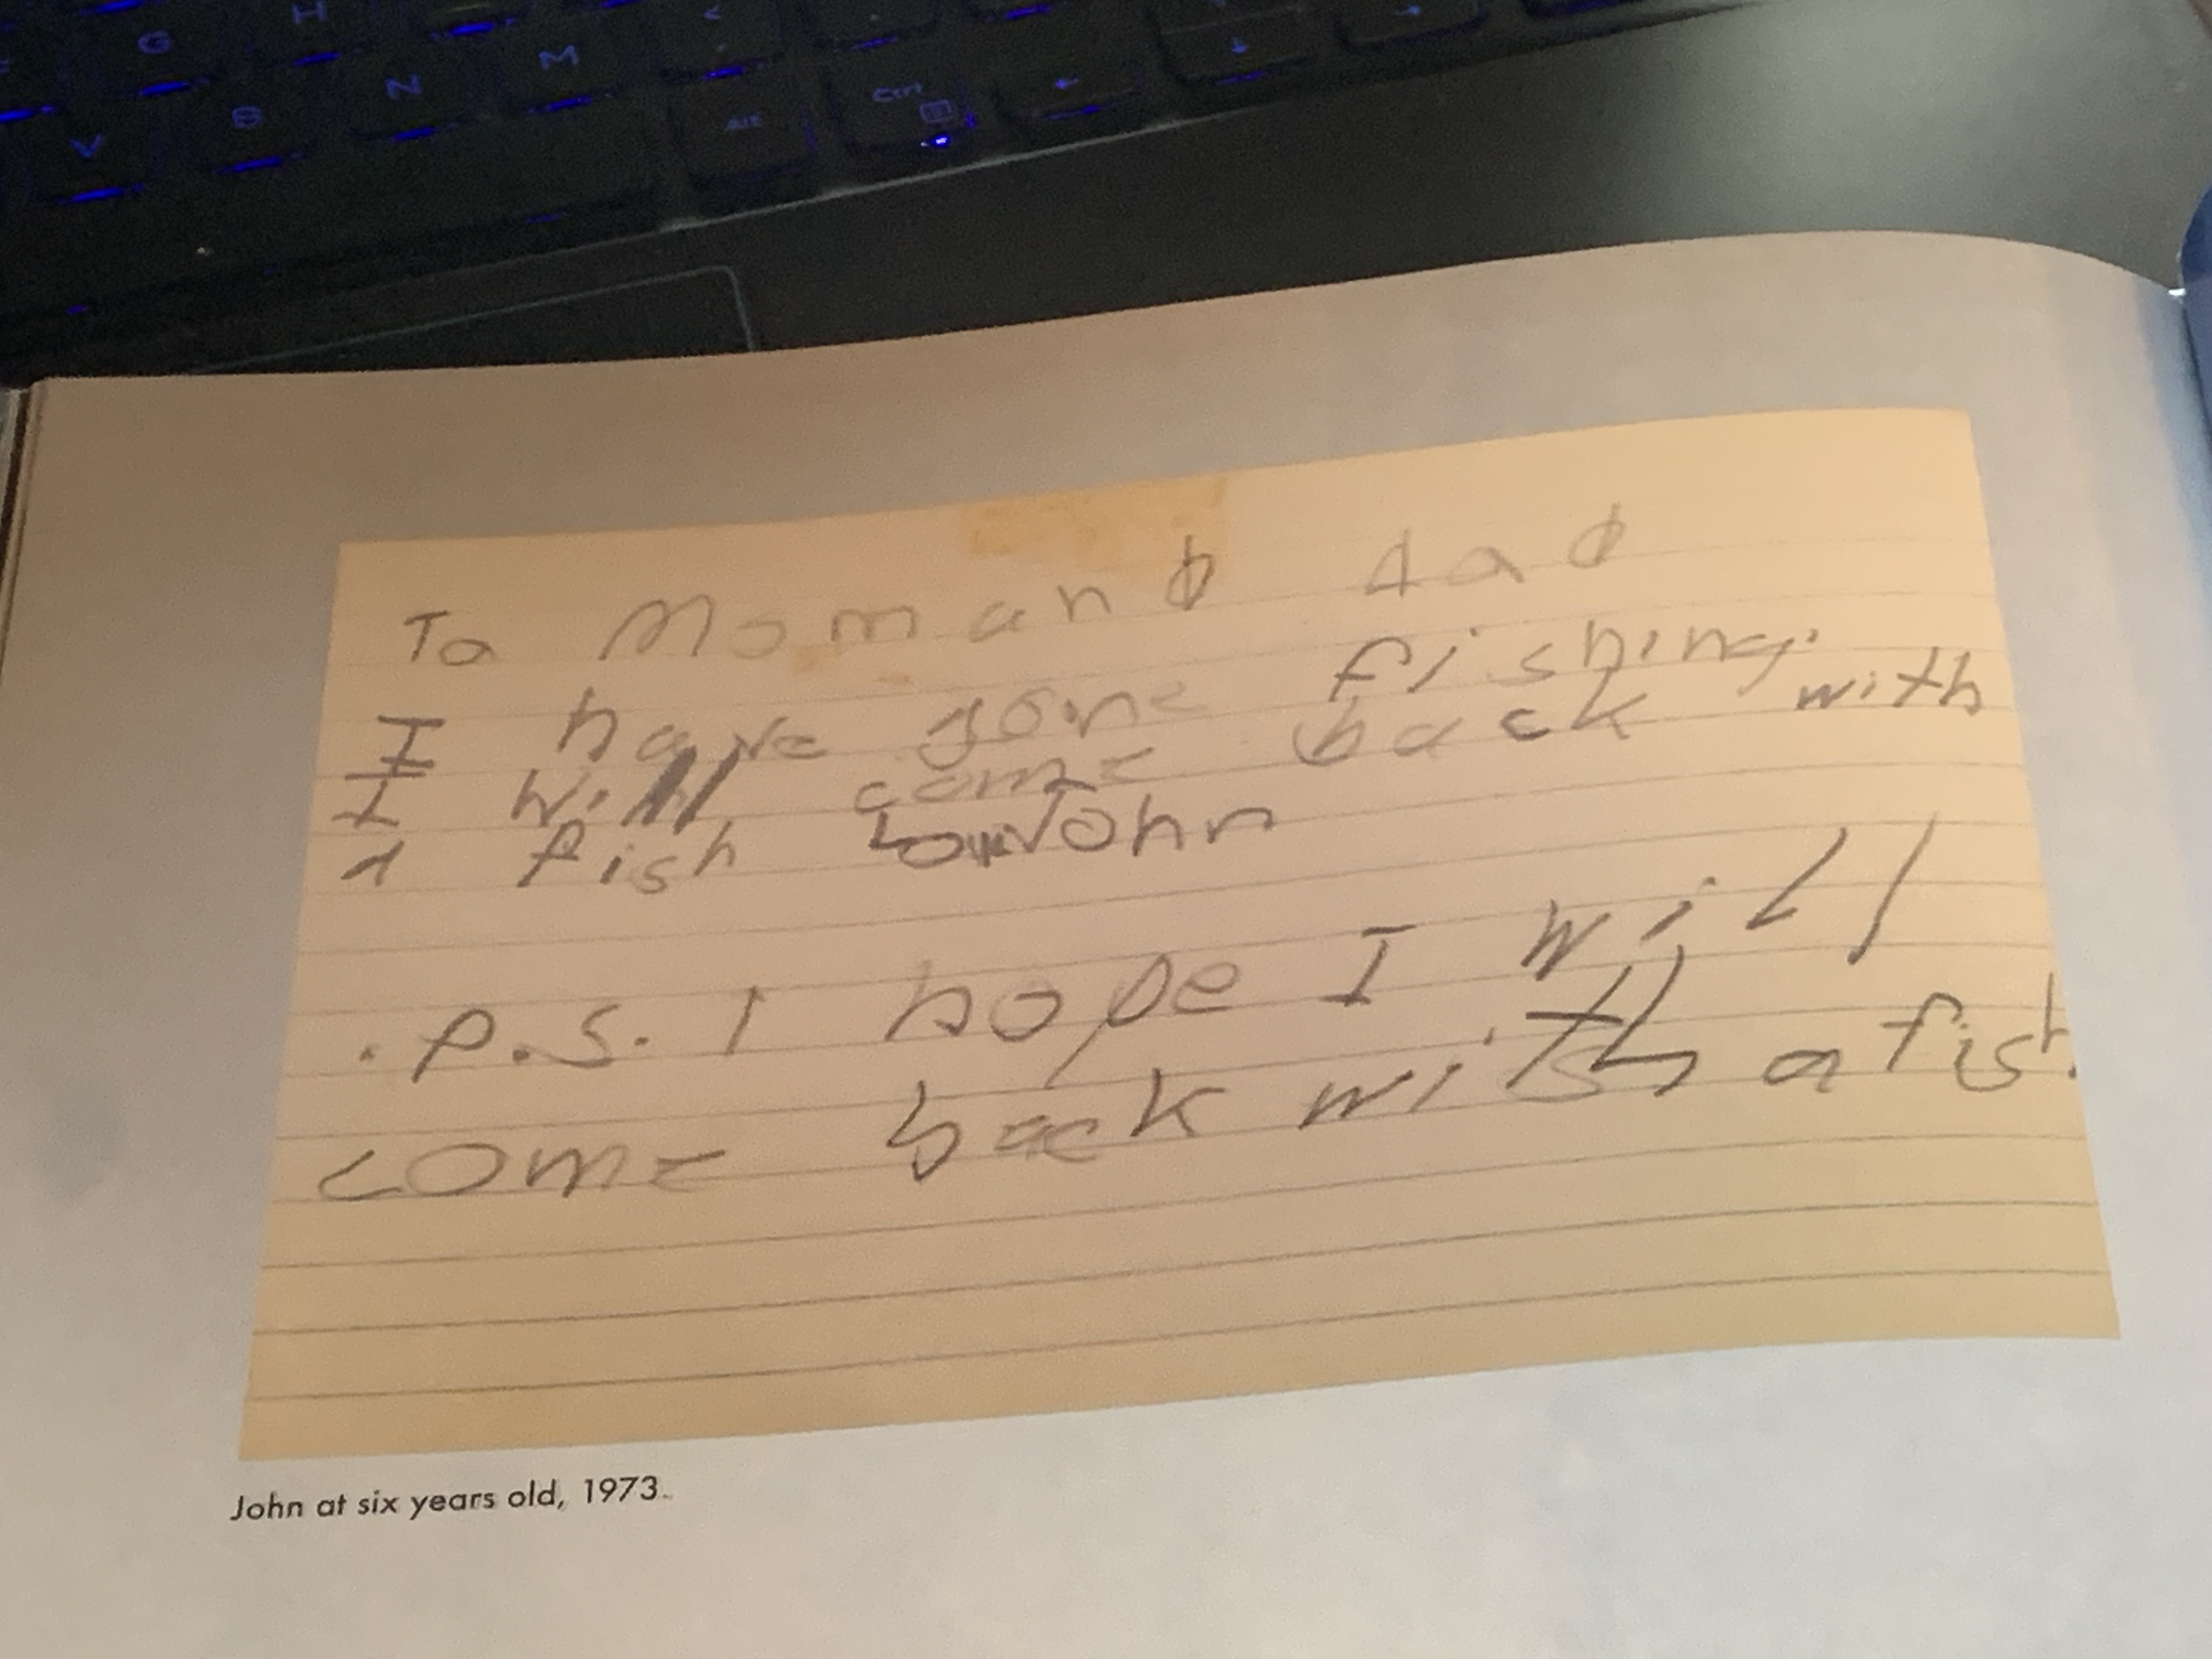 G H <
V B N M Alt Ctrl ← ↓ →
To Mom and dad
I have gone fishing.
I will come back with
a fish John
.P.S. I hope I will
come back with a fish.
John at six years old, 1973.